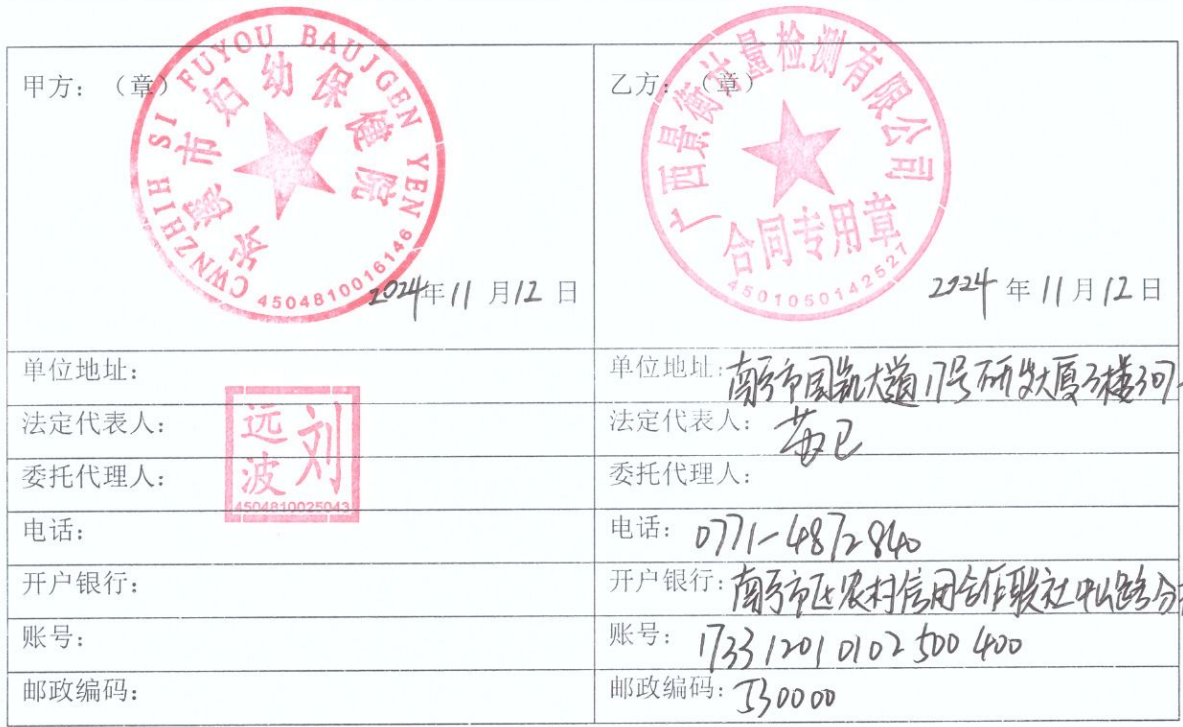 甲方：（章）
CWNZHIH SI FUYOU BAUJGEN YEN
岑溪市妇幼保健院
4504810016146
2024年11月12日
乙方：（章）
广西景衡计量检测有限公司
合同专用章
4501050142527
2024年11月12日
单位地址：
单位地址：南宁市国凯大道17号研发大厦3楼307
法定代表人：
法定代表人：
刘远波
4504810025043
委托代理人：
委托代理人：
电话：
电话：0771-4872840
开户银行：
开户银行：南宁市区农村信用合作联社中山路分
账号：
账号：173312010102500400
邮政编码：
邮政编码：530000